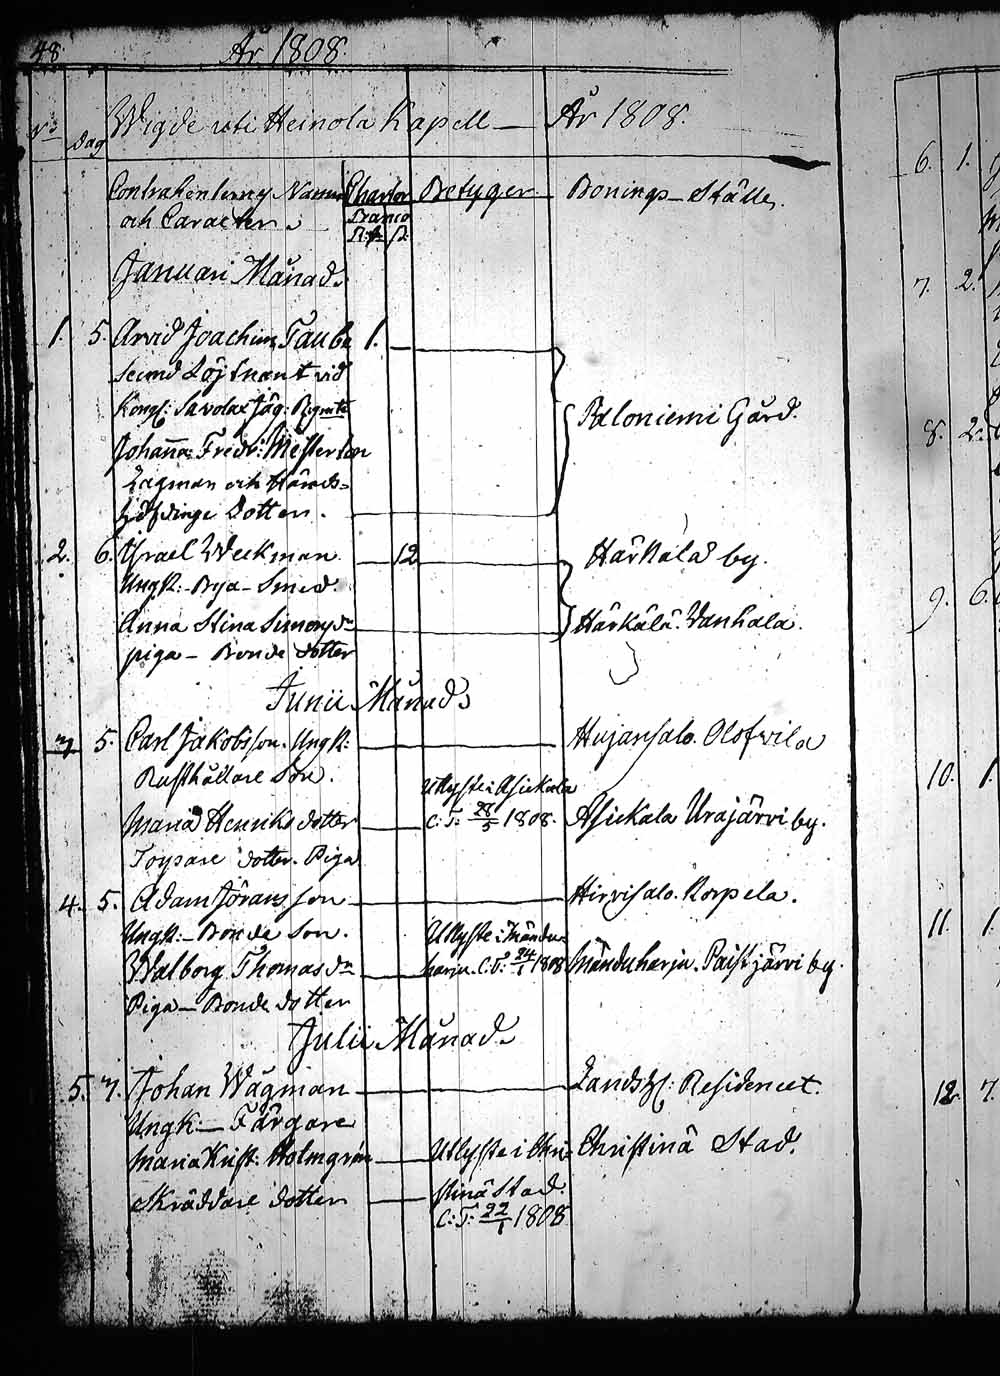 48. År 1808
No Dag Wigde uti Heinola Kapell — År 1808.
Contrahenternes Namn Charta Betyger Bonings-Ställe,
och Caracter. Banco
Januari Månad.
1. 5. Arvid Joachim Taube 1.
Secund Löjtnant vid
Kongl: Savolax Jäg: Regmte
Paloniemi Gård.
Johanna Fredr: Mesterton
Lagman och Härads-
höfdinge Dotter.
2. 6. Israel Weckman 12 Härkälä by.
Ungk:- Bya-Smed.
Anna Stina Simonsdr Härkälä. Wanhala.
piga — Bonde dotter
Junii Månad.
3 5. Carl Jakobsson. Ungk: Hujansalo. Olofvila
Rusthållare Son. Utlyste i Asickala
Maria Henriks dotter C: T: 28/5 1808. Asickala Urajärvi by.
Torpare dotter. Piga
4. 5. Adam Jöransson Hirvisalo. Korpela.
Ungk:- Bonde Son. Utlyste i Mändu-
Walborg Thomasdr harju. C: T: 24/1 1808 Mänduharju. Paistjärvi by.
Piga — Bonde dotter
Julii Månad.
5. 7. Johan Wägman Landshf: Residencet.
Ungk:— Färgare
Maria Krist: Holmgrén Utlyste i Chri- Christinä Stad.
Skräddare dotter stinä Stad.
C: T: 22/1 1808
6. 1.
7. 2.
8. 2.
9. 6.
10. 1.
11. 1.
12. 7.